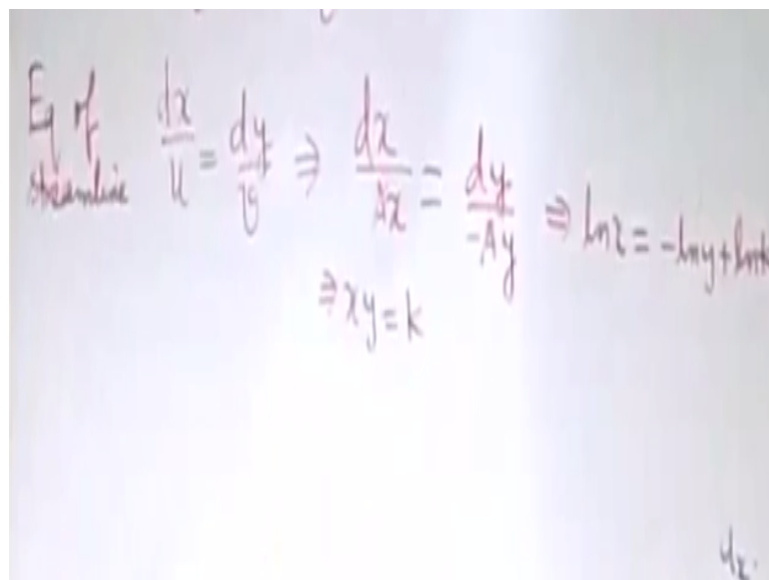 Eq of streamline dx/u = dy/v ⇒ dx/Ax = dy/-Ay ⇒ ln x = -ln y + ln k
⇒ xy = k